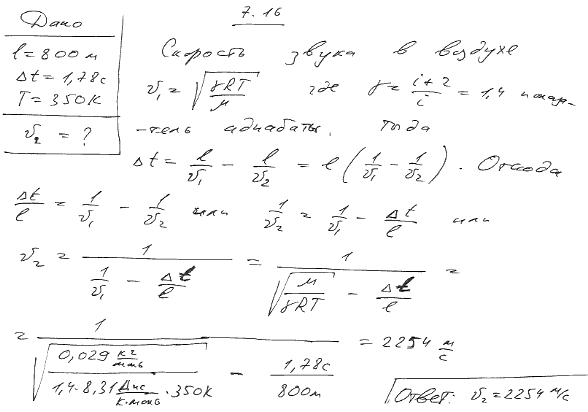 7.16
Дано
l = 800 м
Δt = 1,78 с
T = 350 К
υ₂ = ?
Скорость звука в воздухе
υ₁ = √(γRT/μ) где γ = (i+2)/i = 1,4 показа-
-тель адиабаты, тогда
Δt = l/υ₁ - l/υ₂ = l (1/υ₁ - 1/υ₂). Отсюда
Δt/l = 1/υ₁ - 1/υ₂ или 1/υ₂ = 1/υ₁ - Δt/l или
υ₂ = 1/(1/υ₁ - Δt/l) = 1/(√(μ/(γRT)) - Δt/l) =
= 1/(√(0,029 кг/моль / (1,4·8,31 Дж/(К·моль) · 350К)) - 1,78с/800м) = 2254 м/с
Ответ: υ₂ = 2254 м/с